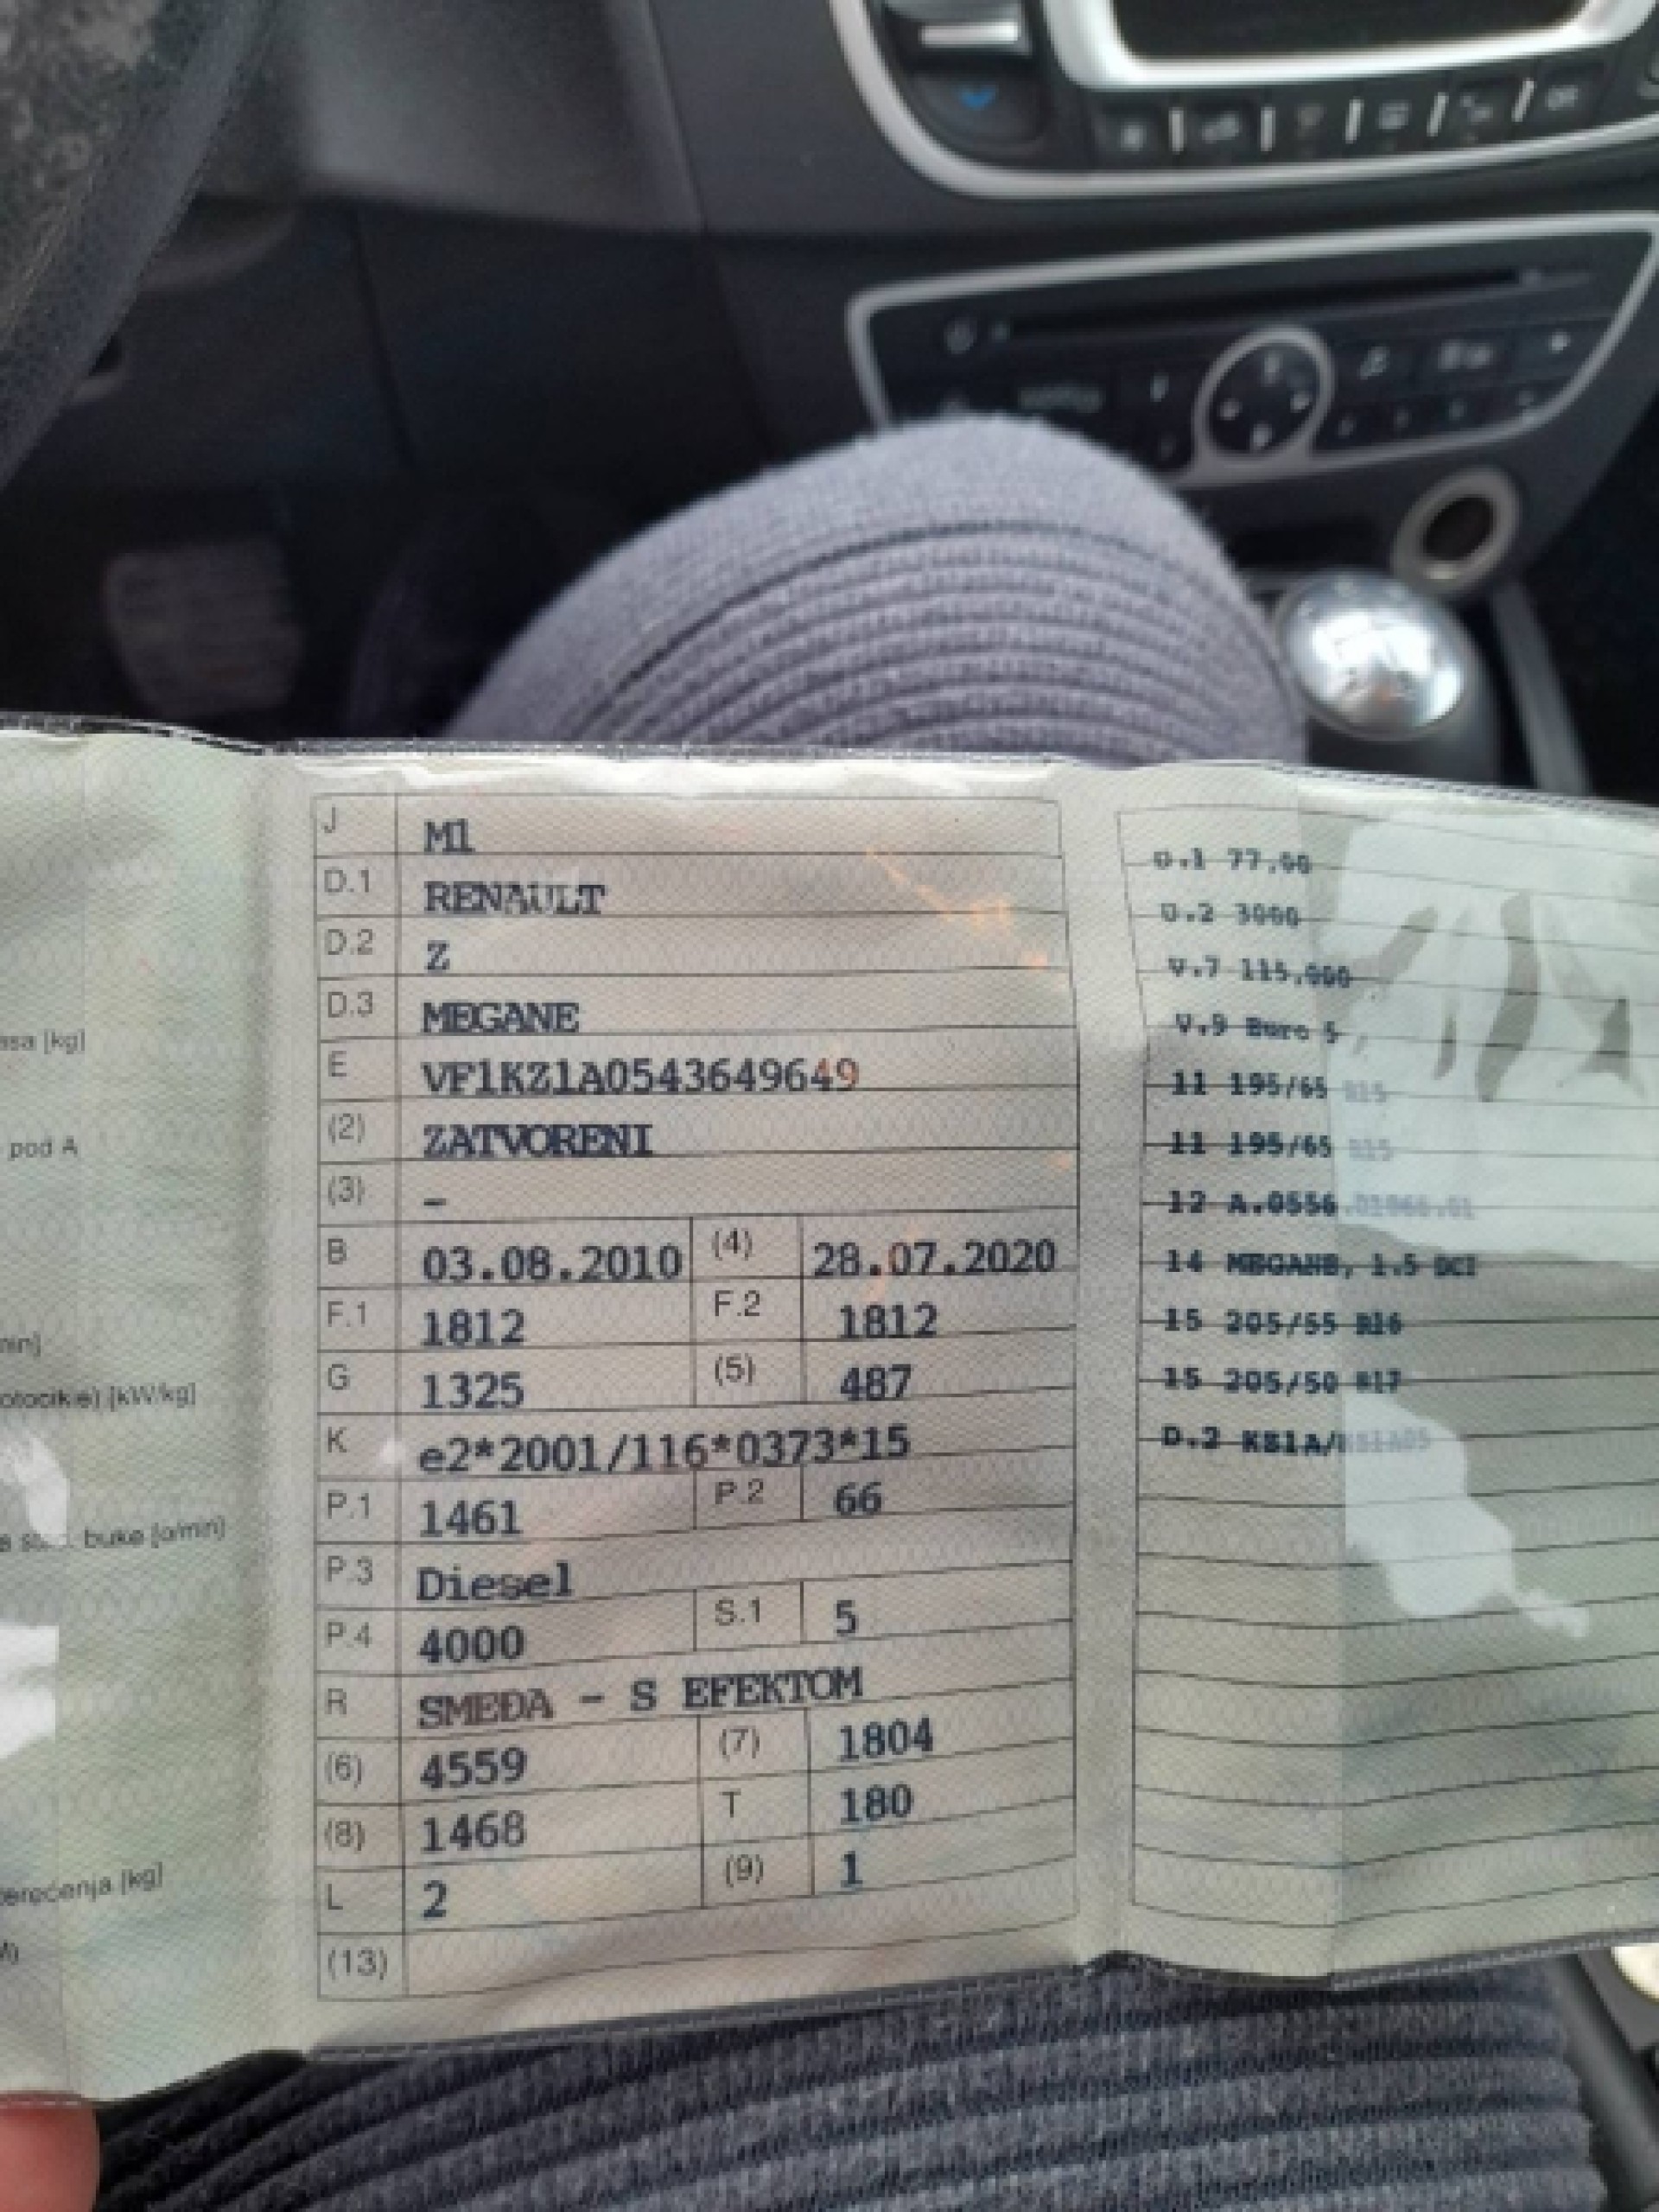 asa [kg]
pod A
min]
otocikle) [kW/kg]
buke [o/min]
terećenja [kg]
J M1
D.1 RENAULT
D.2 Z
D.3 MEGANE
E VF1KZ1A0543649649
(2) ZATVORENI
(3) -
B 03.08.2010 (4) 28.07.2020
F.1 1812 F.2 1812
G 1325 (5) 487
K e2*2001/116*0373*15
P.1 1461 P.2 66
P.3 Diesel
P.4 4000 S.1 5
R SMEĐA - S EFEKTOM
(6) 4559 (7) 1804
(8) 1468 T 180
L 2 (9) 1
(13)
U.1 77.00
U.2 3000
V.7 115.000
V.9 Euro 5
11 195/65 R15
11 195/65 R15
12 A.0556
14 MEGANE, 1.5 DCI
15 205/55 R16
15 205/50 R17
D.2